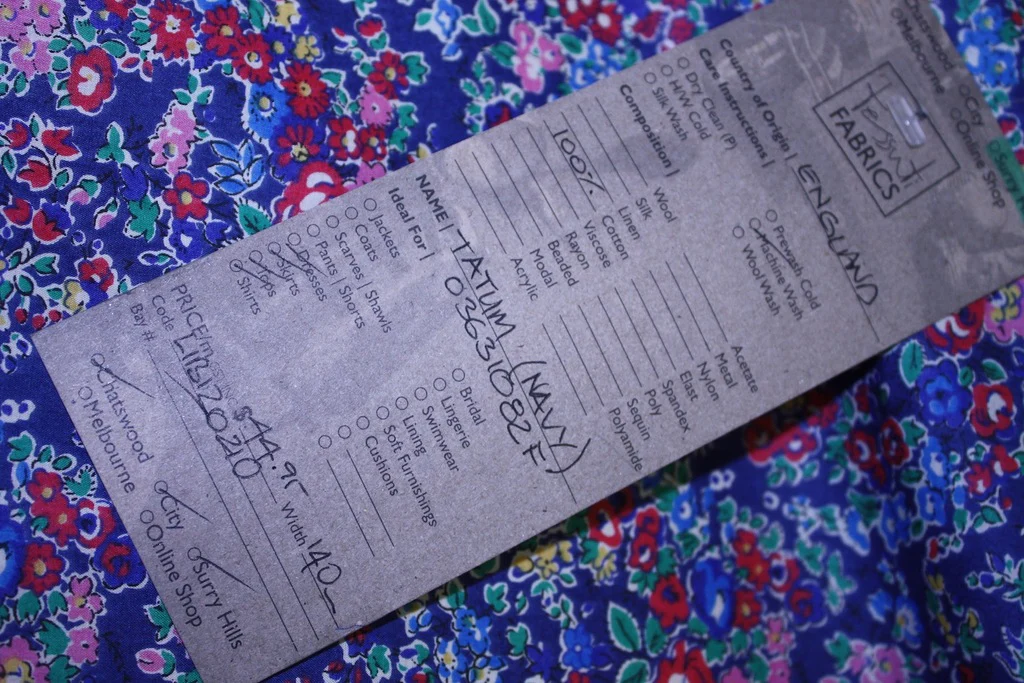 Chatswood
Melbourne
City
Online Shop
Tessuti
FABRICS
Country of Origin | ENGLAND
Care Instructions |
Dry Clean (P)
H/W Cold
Silk Wash
Prewash Cold
Machine Wash
Wool Wash
Composition |
Wool
Silk
Linen
100% Cotton
Viscose
Rayon
Beaded
Modal
Acrylic
Acetate
Metal
Nylon
Elast
Spandex
Poly
Sequin
Polyamide
NAME | TATUM (NAVY)
03631082F
Ideal For |
Jackets
Coats
Scarves | Shawls
Pants | Shorts
Dresses
Skirts
Tops
Shirts
Bridal
Lingerie
Swimwear
Lining
Soft Furnishings
Cushions
PRICE/m $44.95 Width 140
Code LIB12040
Bay #
Chatswood
Melbourne
City
Online Shop
Surry Hills